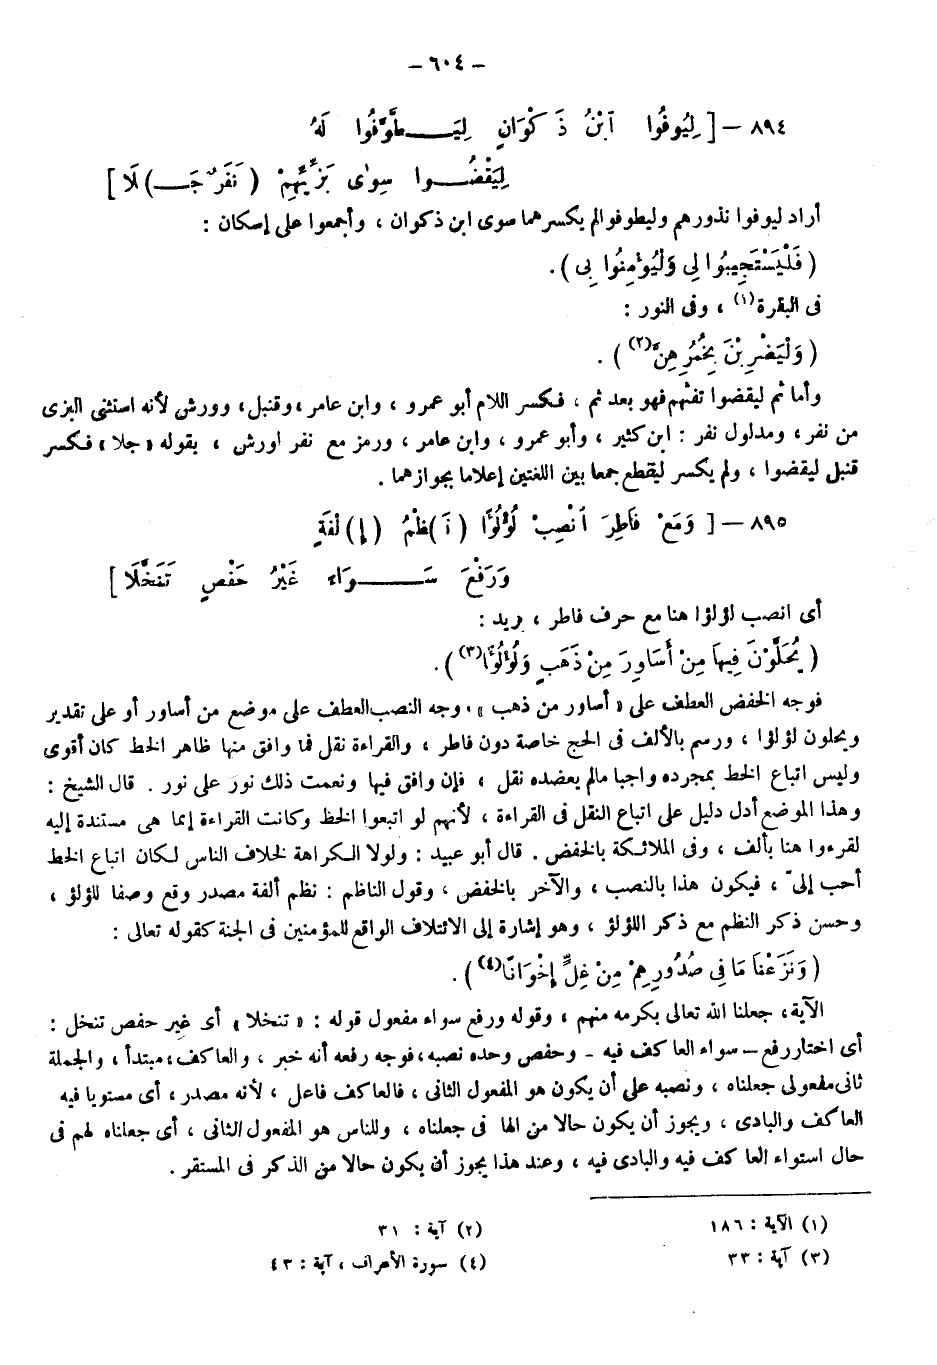 – ٦٠٤ –
٨٩٤ – [ لِيُوفُوا ابْنُ ذَكْوَانٍ لِيَطَّوَّفُوا لَهُ
لِيَقْضُوا سِوَى بَزِّيِّهِمْ ( نَفَرٌ جَـ)ـلَا ]
أراد ليوفوا نذورهم وليطوفوا لم يكسرهما سوى ابن ذكوان ، وأجمعوا على إسكان :
( فَلْيَسْتَجِيبُوا لِى وَلْيُؤْمِنُوا بِى ) .
فى البقرة(١) ، وفى النور :
( وَلْيَضْرِبْنَ بِخُمُرِهِنَّ(٢) ) .
وأما ثم ليقضوا تفثهم فهو بعد ثم ، فكسر اللام أبو عمرو ، وابن عامر ، وقنبل ، وورش لأنه استثنى البزى
من نفر ، ومدلول نفر : ابن كثير ، وأبو عمرو ، وابن عامر ، ورمز مع نفر لورش ، بقوله « جلا » فكسر
قنبل ليقضوا ، ولم يكسر ليقطع جمعا بين اللغتين إعلاما بجوازهما .
٨٩٥ – [ وَمَعْ فَاطِرَ انْصِبْ لُؤْلُؤًا ( نَـ)ـظْمُ ( إِ)لْفَةٍ
وَرَفْعَ سَوَاءً غَيْرُ حَفْصٍ تَنَخَّلَا ]
أى انصب لؤلؤا هنا مع حرف فاطر ، يريد :
( يُحَلَّوْنَ فِيهَا مِنْ أَسَاوِرَ مِنْ ذَهَبٍ وَلُؤْلُؤًا(٣) ) .
فوجه الخفض العطف على « أساور من ذهب » ، وجه النصب العطف على موضع من أساور أو على تقدير
ويحلون لؤلؤا ، ورسم بالألف فى الحج خاصة دون فاطر ، والقراءة نقل فما وافق منها ظاهر الخط كان أقوى
وليس اتباع الخط بمجرده واجبا مالم يعضده نقل ، فإن وافق فبها ونعمت ذلك نور على نور . قال الشيخ :
وهذا الموضع أدل دليل على اتباع النقل فى القراءة ، لأنهم لو اتبعوا الخط وكانت القراءة إنما هى مستندة إليه
لقرءوا هنا بألف ، وفى الملائكة بالخفض . قال أبو عبيد : ولولا الكراهة لخلاف الناس لكان اتباع الخط
أحب إلىّ ، فيكون هذا بالنصب ، والآخر بالخفض ، وقول الناظم : نظم ألفة مصدر وقع وصفا للؤلؤ ،
وحسن ذكر النظم مع ذكر اللؤلؤ ، وهو إشارة إلى الائتلاف الواقع للمؤمنين فى الجنة كقوله تعالى :
( وَنَزَعْنَا مَا فِى صُدُورِهِمْ مِنْ غِلٍّ إِخْوَانًا(٤) ) .
الآية ، جعلنا الله تعالى بكرمه منهم ، وقوله ورفع سواء مفعول قوله : « تنخلا » أى غير حفص تنخل :
أى اختار رفع – سواء العاكف فيه – وحفص وحده نصبه ، فوجه رفعه أنه خبر ، والعاكف ، مبتدأ ، والجملة
ثانى مفعولى جعلناه ، ونصبه على أن يكون هو المفعول الثانى ، فالعاكف فاعل ، لأنه مصدر ، أى مستويا فيه
العاكف والبادى ، ويجوز أن يكون حالا من الها فى جعلناه ، وللناس هو المفعول الثانى ، أى جعلناه لهم فى
حال استواء العاكف فيه والبادى فيه ، وعند هذا يجوز أن يكون حالا من الذكر فى المستقر .
(١) الآية : ١٨٦
(٢) آية : ٣١
(٣) آية : ٣٣
(٤) سورة الأعراف ، آية : ٤٣